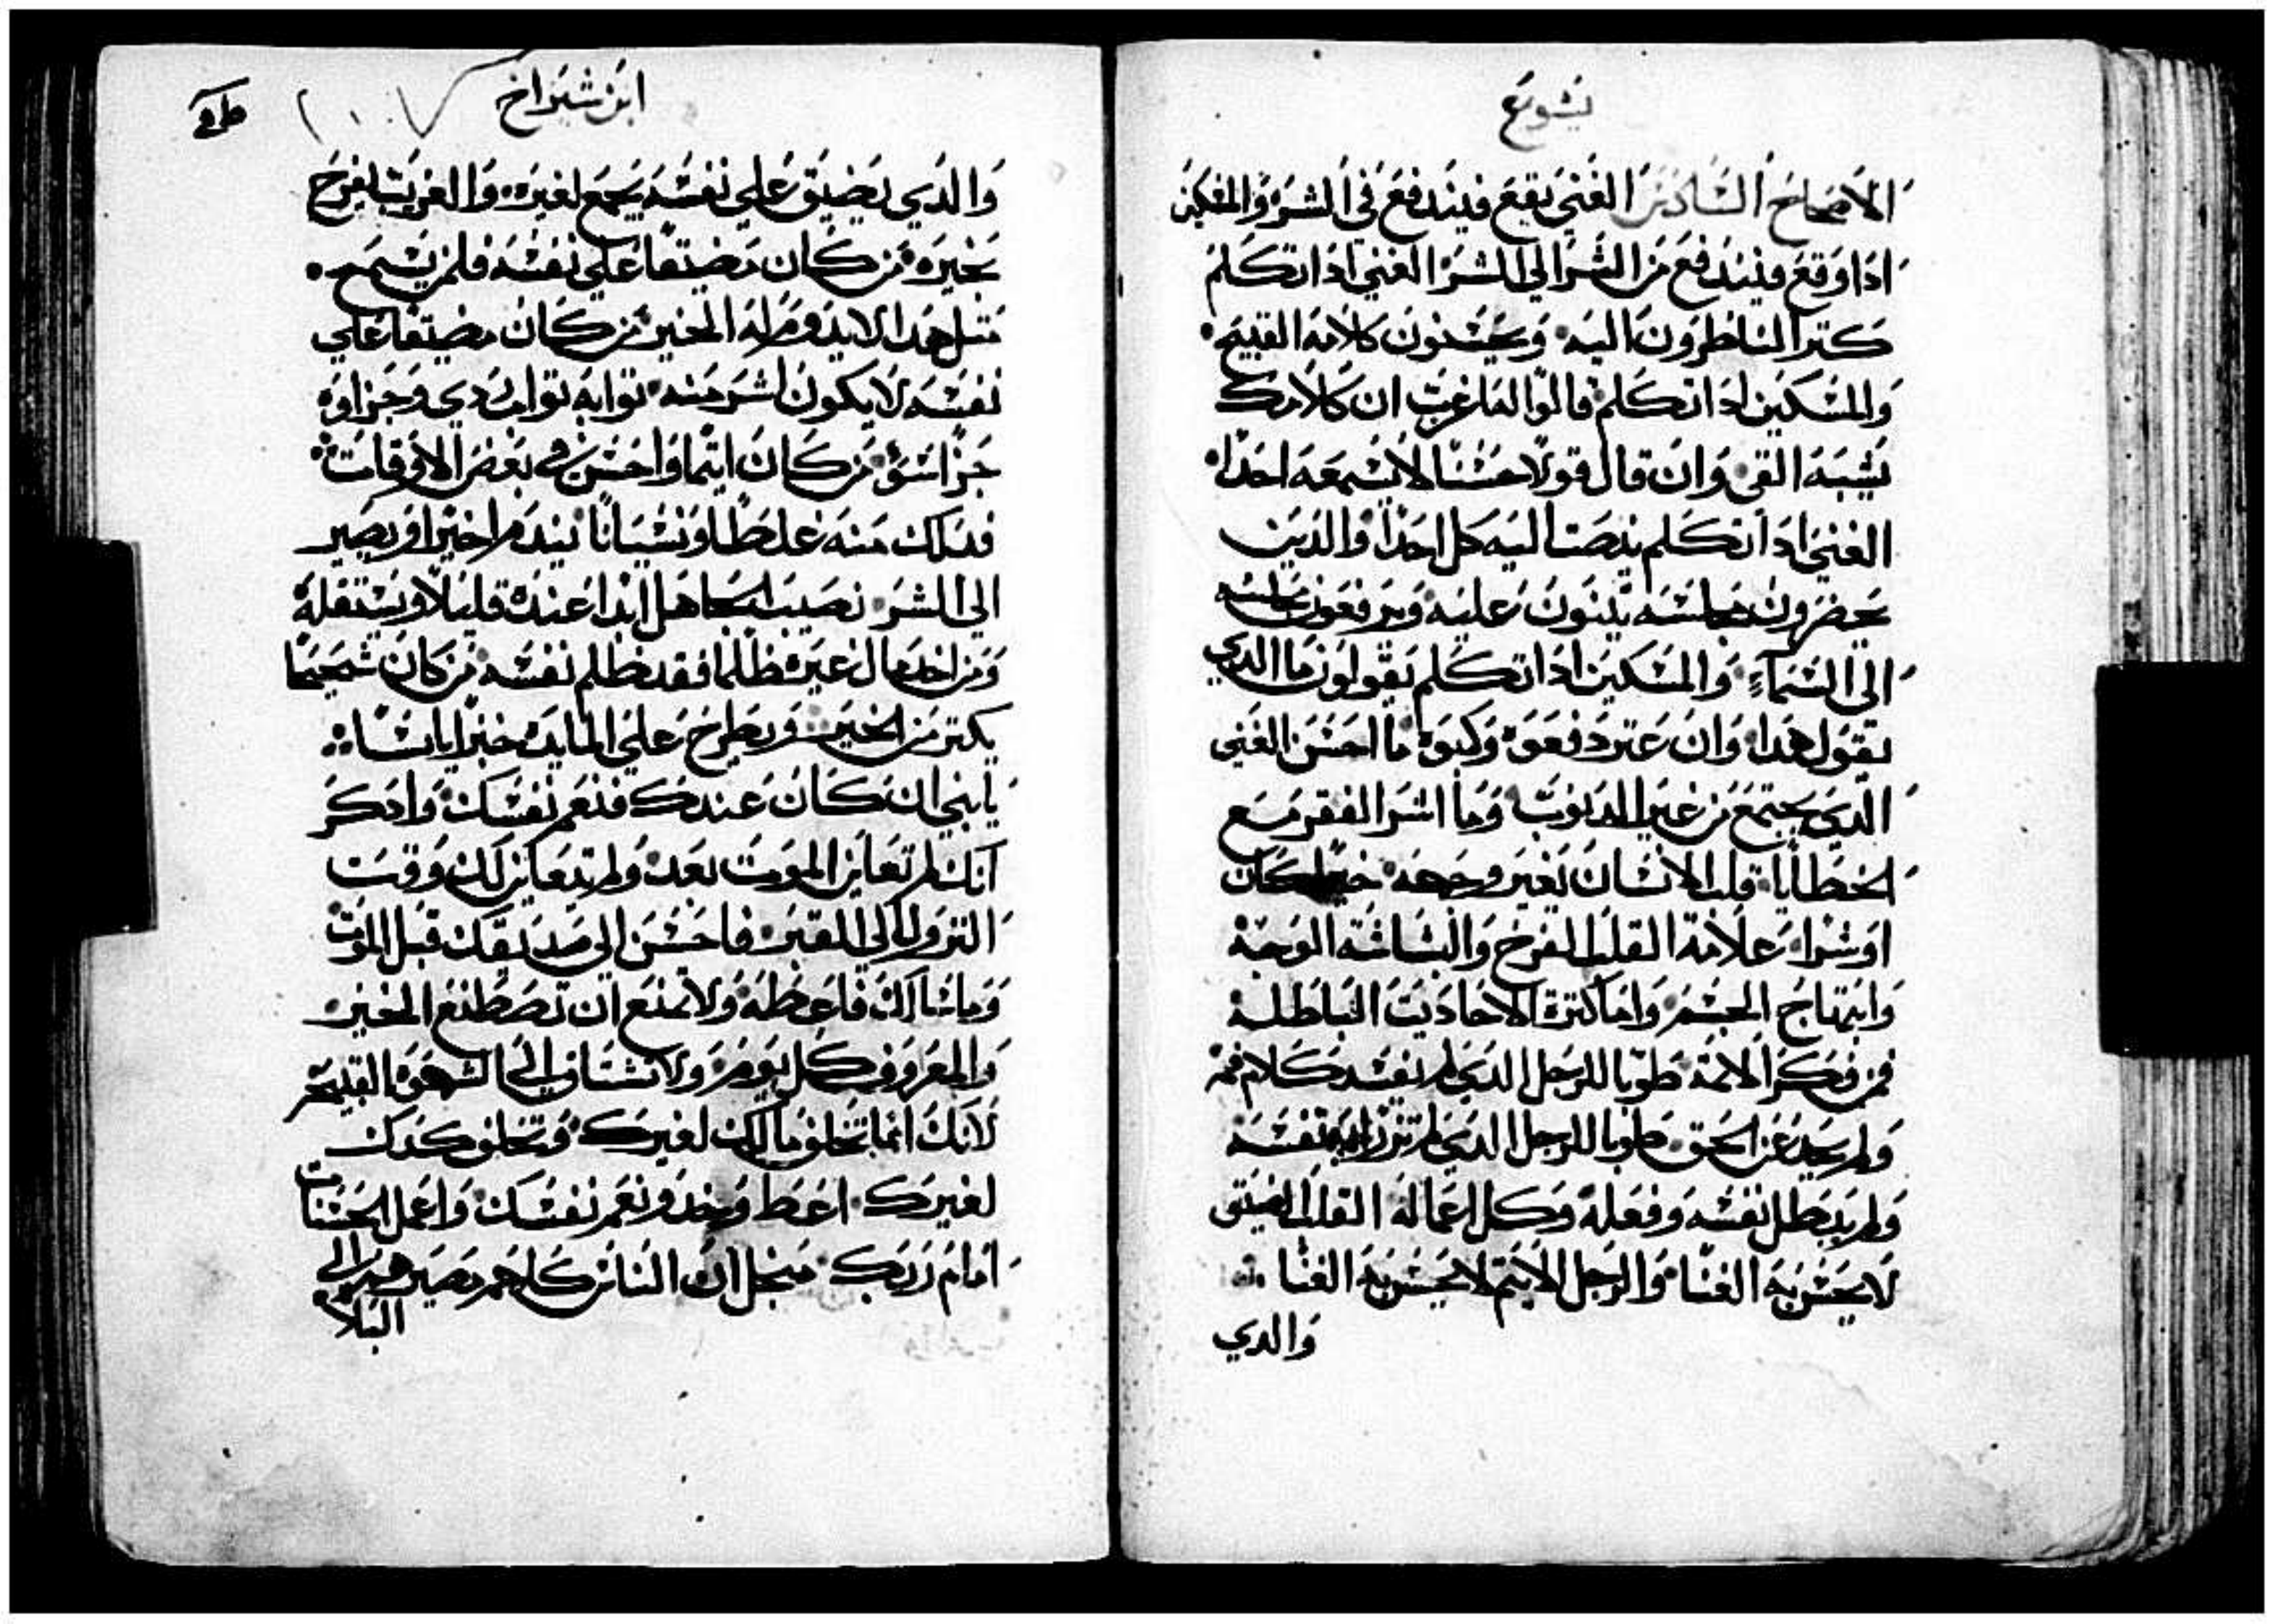 يشوع
الاصحاح السادس الغني يقع فيندفع في الشر والمسكين
اذا وقع فيندفع من الشر الي الشر الغني اذا تكلم
كتر الناظرون اليه ويحسنون كلامه القبيح
والمسكين اذا تكلم قالوا لما غبت ان كلامك
يشبه القي وان قال قولا حسنا لا يسمعه احدا
الغني اذا تكلم ينصت اليه كل احدا والدين
يحضرون مجلسه يتنون عليه ويرفعون مجلسه
الي السماء والمسكين اذا تكلم يقولون ما الدي
يقول هدا وان عتر دفعوه وكبوه ما احسن الغني
الدي يجتمع من غير الدنوب وما اشر الفقر مع
الخطايا قلب الانسان يغير وجهه خيرا كان
او شرا علامة القلب الفرح والبشاشه الوجه
وابتهاج الجسم واما كترة الاحاديت الباطله
فمن فكر الاتمة طوبا للرجل الدي لم يفسد كلام فمه
ولم يحيد عن الحق طوبا للرجل الدي لم تزدريه نفسه
ولم يبطل نفسه وفعله وكل اعماله القلب الضيق
لا يحسن به الغنا والرجل الاتيم لا يحسن به الغنا
والدي
ابن شيراخ
والدي يضيق علي نفسه يجمع لغيره والغريب يفرح
بخيره من كان مضيقا علي نفسه فلمن يسمح
متل هدا لا يدوم له الخير من كان مضيقا علي
نفسه لا يكون اشر منه توابه تواب ردي وجزاوه
جزا سو من كان اتيما واحسن في بعض الاوقات
فدلك منه غلطا ونسيانا يندم اخيرا ويصير
الي الشر نصيب الجاهل ابدا عنده قليلا ويستقله
ومن اخد مال غيره ظلما فقد ظلم نفسه من كان شحيحا
يكتر من الخير ويطرح علي المايده خبزا يابسا
يابني ان كان عندك فنعم نفسك وادكر
انك لم تعاين الموت بعد ولم يتعاين لك وقت
النزول الي القبر فاحسن الي صديقك قبل الموت
وما سالك فاعطه ولا تمنع ان تصطنع الخير
والمعروف كل يوم ولا تشتاق الي الشهوه القبيحه
لانك انما تخلف مالك لغيرك وتخلف كدك
لغيرك اعط وخد ونعم نفسك واعمل الحسنات
امام ربك منجل ان الناس كلهم مصيرهم الي
البلا